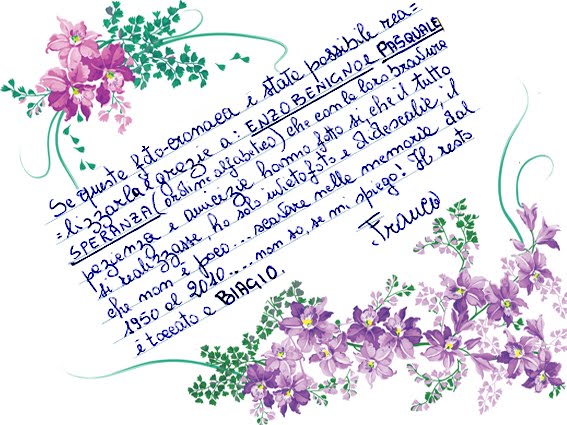 Se questa foto-cronaca è stata possibile rea=
=lizzarla è grazie a: ENZO BENIGNO e PASQUALE
SPERANZA (ordine alfabetico) che con la loro bravura
pazienza e amicizia hanno fatto sì, che il tutto
si realizzasse, ho solo inviato foto e didescalie, il
che non è poco... scavare nelle memorie dal
1950 al 2010.... non so, se mi spiego! Il resto
è toccato a BIAGIO.
Franco